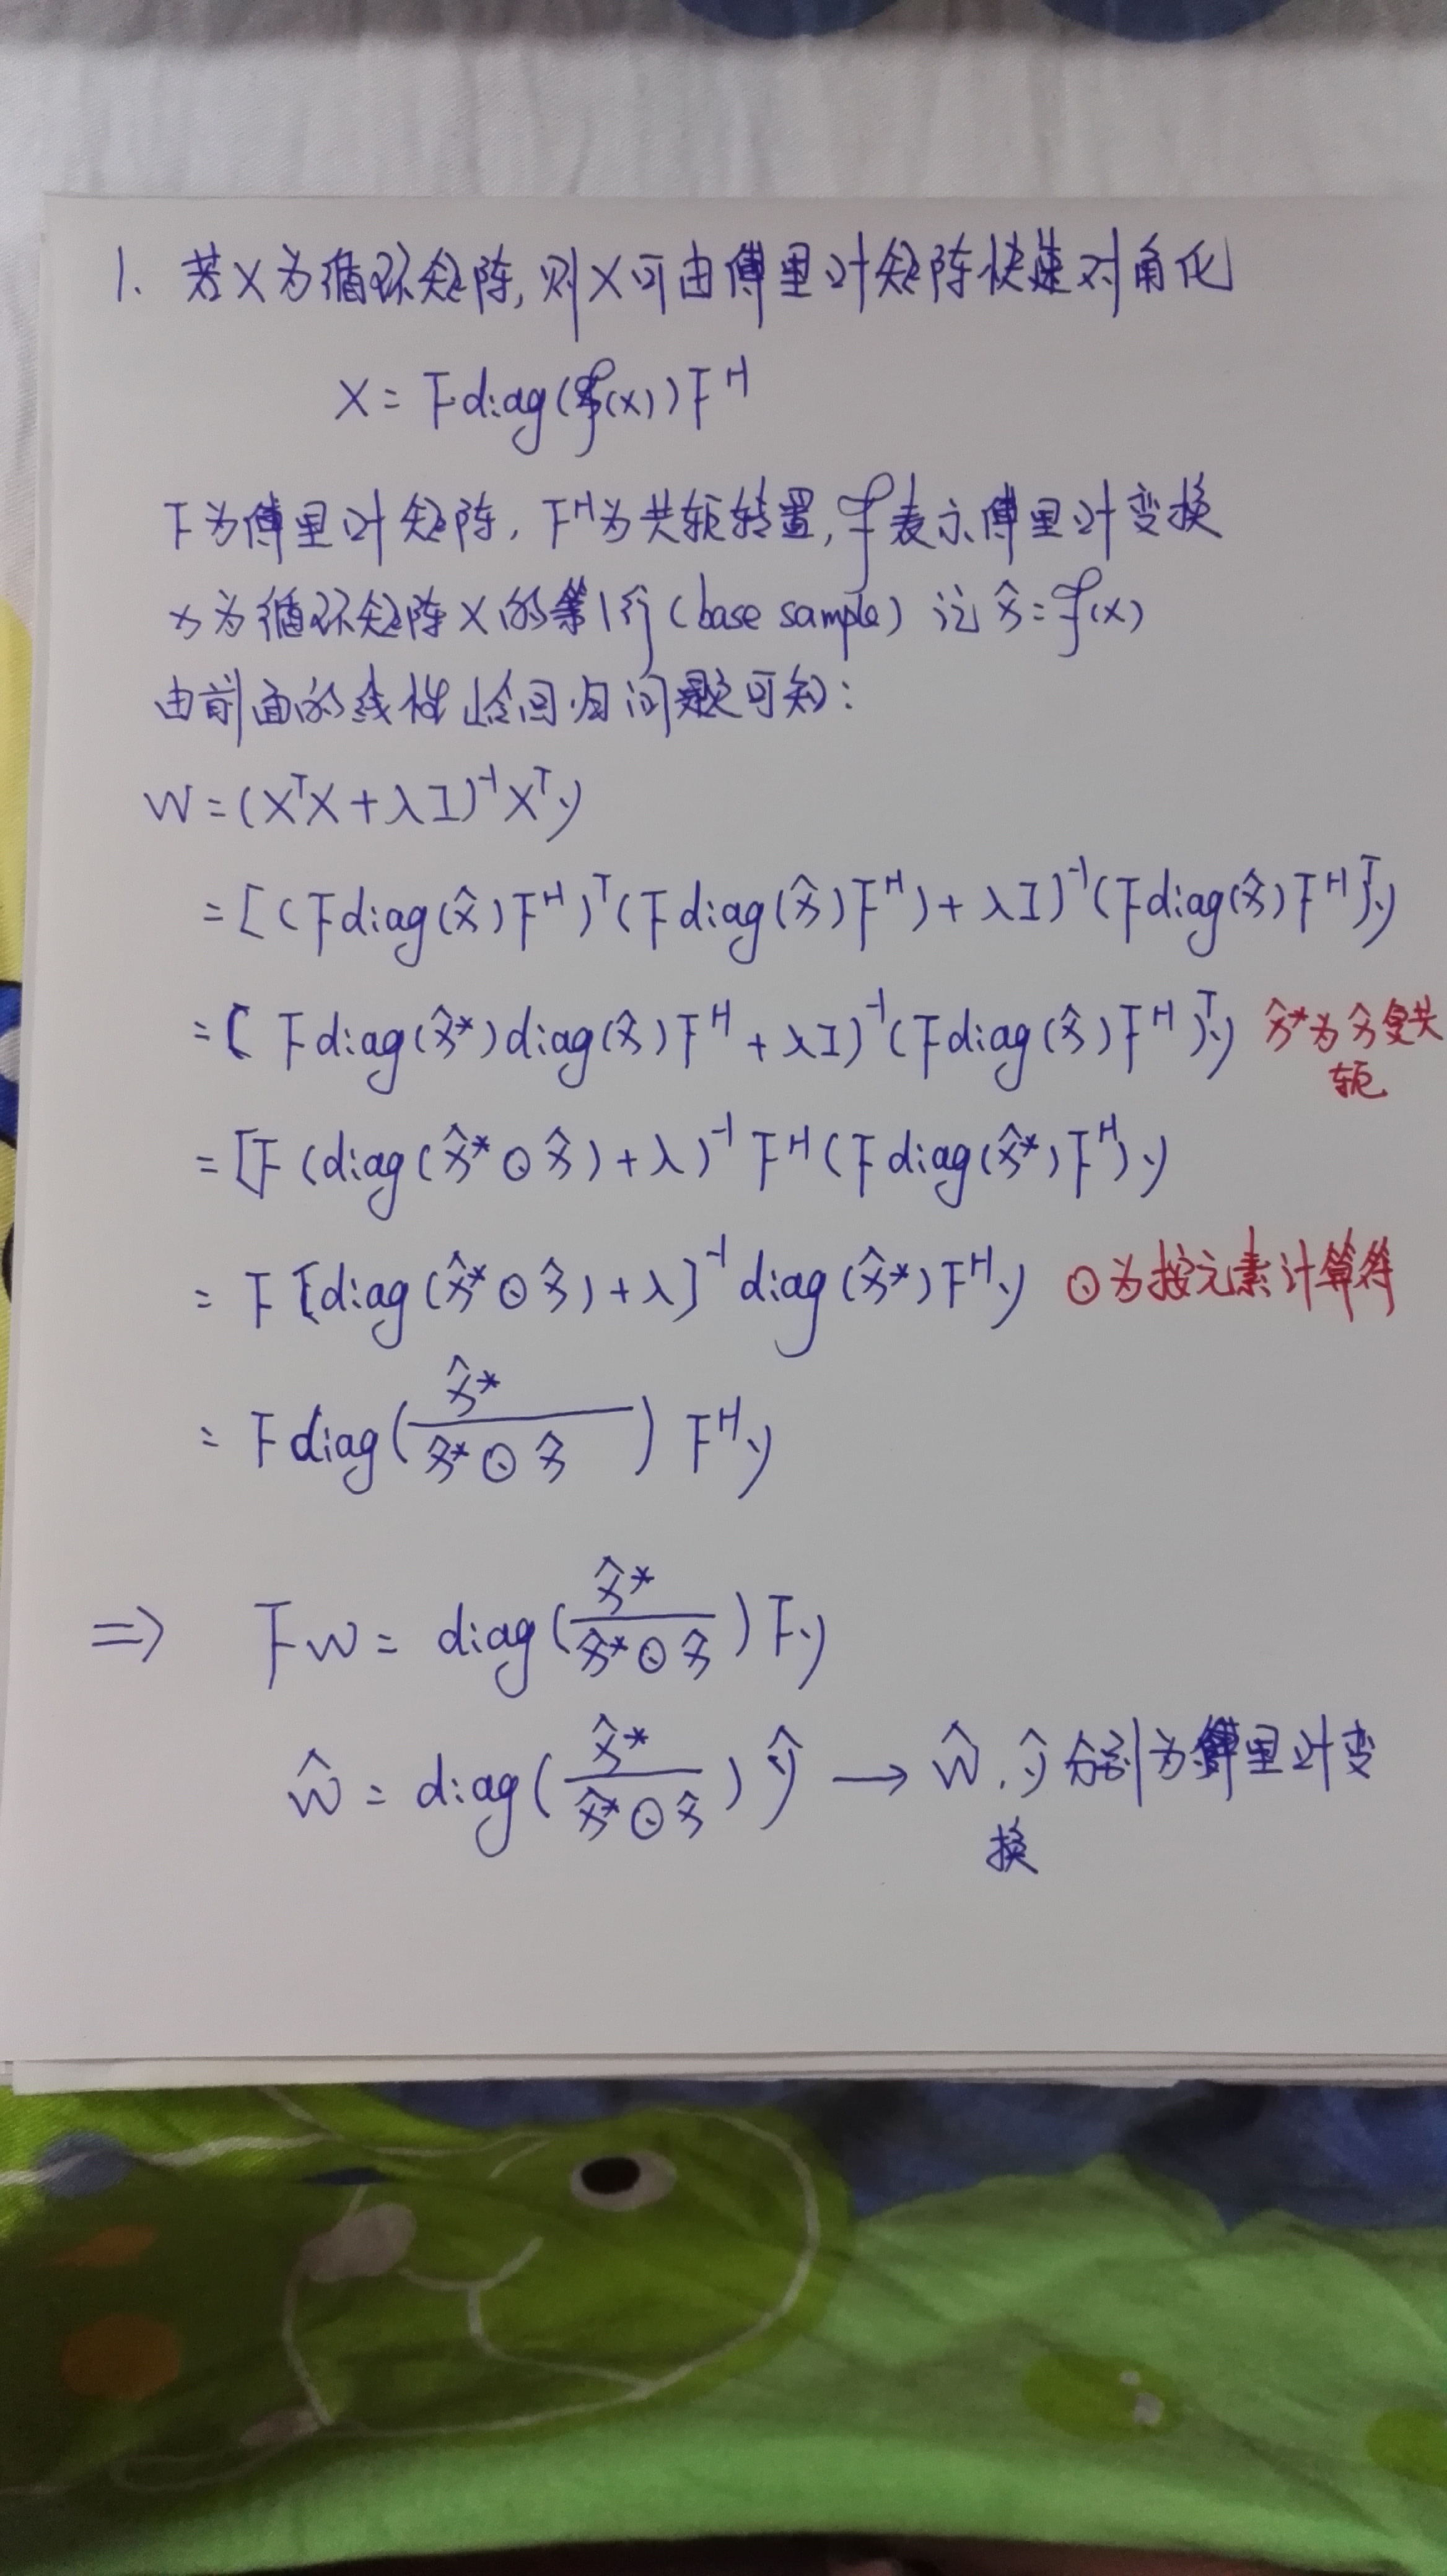 1. 若X为循环矩阵,则X可由傅里叶矩阵快速对角化
X = Fdiag(ℱ(x))F^H
F为傅里叶矩阵, F^H为共轭转置, ℱ表示傅里叶变换
x为循环矩阵X的第1行(base sample) 记 x̂ = ℱ(x)
由前面的线性岭回归问题可知:
W = (X^TX + λI)^-1 X^Ty
= [(Fdiag(x̂)F^H)^T(Fdiag(x̂)F^H) + λI]^-1 (Fdiag(x̂)F^H)^Ty
= [Fdiag(x̂*)diag(x̂)F^H + λI)^-1 (Fdiag(x̂)F^H)^Ty x̂*为x̂复共
轭
= [F(diag(x̂*⊙x̂) + λ)^-1 F^H(Fdiag(x̂*)F^H)y
= F[diag(x̂*⊙x̂) + λ]^-1 diag(x̂*)F^Hy ⊙为按元素计算符
= Fdiag(x̂* / x̂*⊙x̂) F^Hy
=> Fw = diag(x̂* / x̂*⊙x̂)Fy
ŵ = diag(x̂* / x̂*⊙x̂)ŷ → ŵ, ŷ分别为傅里叶变
换